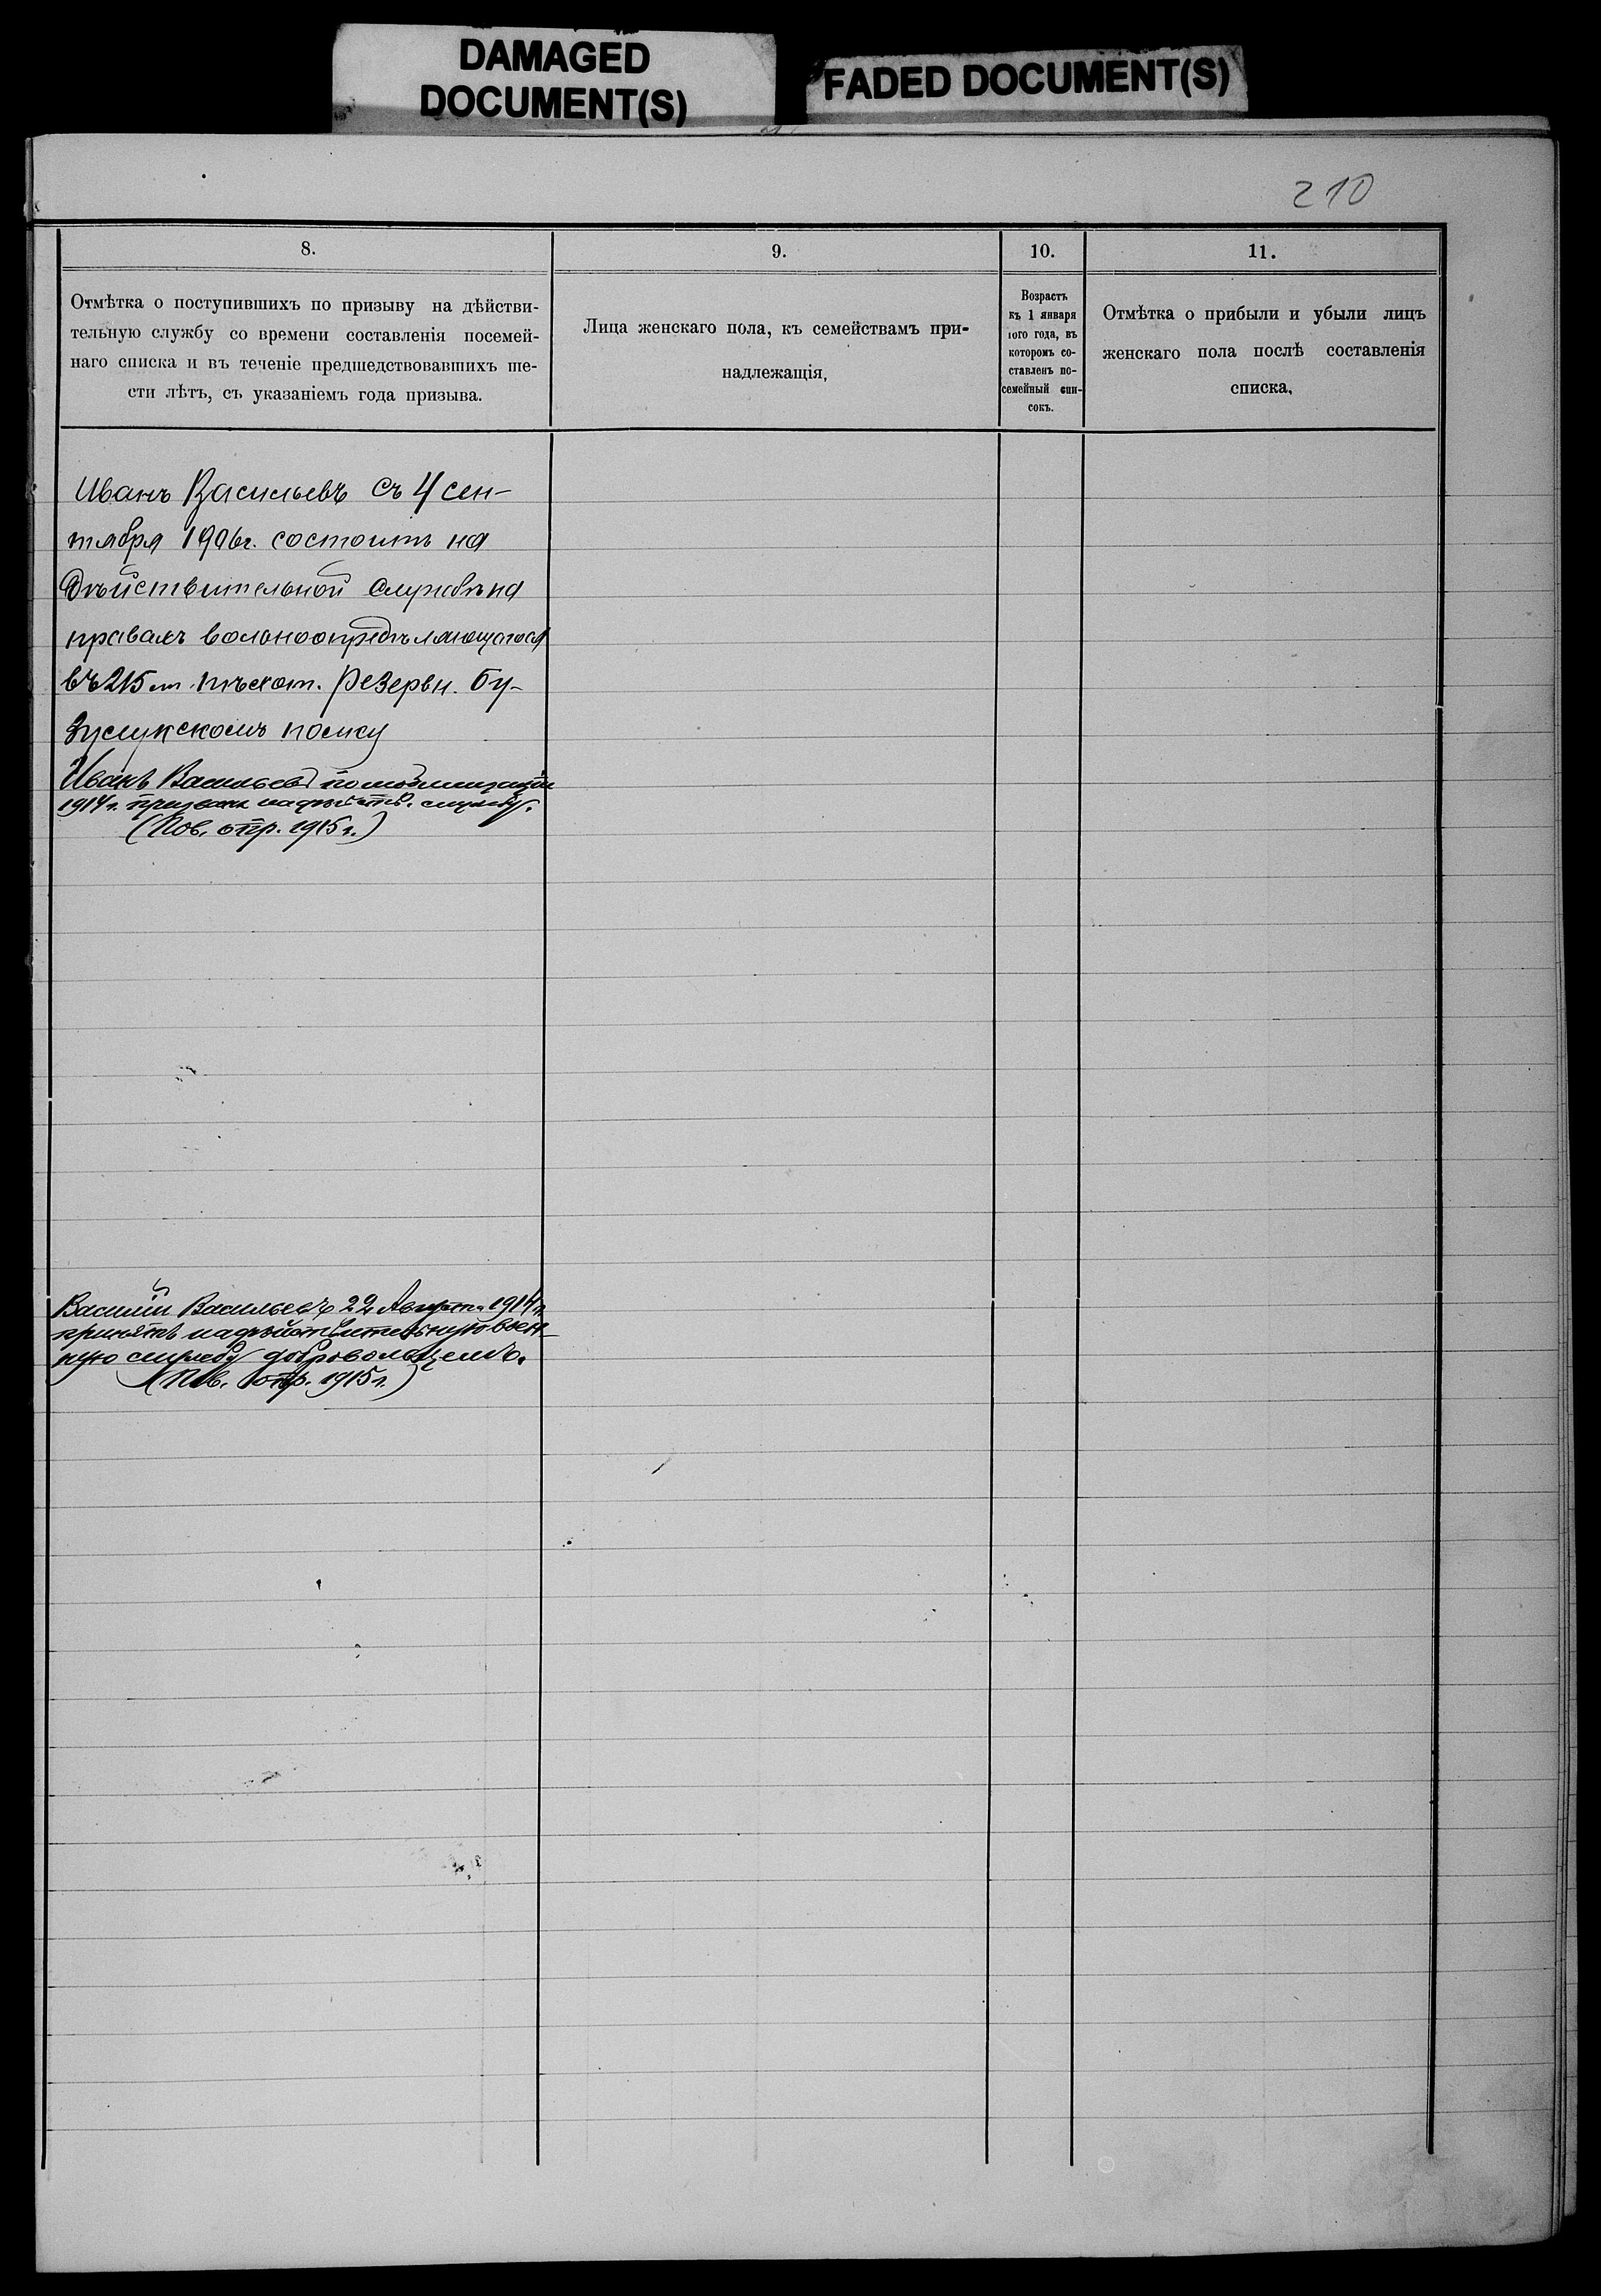 DAMAGED
DOCUMENT(S)
FADED DOCUMENT(S)
210
8.
Отмѣтка о поступившихъ по призыву на дѣйстви-
тельную службу со времени составленія посемей-
наго списка и въ теченіе предшедствовавшихъ ше-
сти лѣтъ, съ указаніемъ года призыва.
9.
Лица женскаго пола, къ семействамъ при-
надлежащія,
10.
Возрастъ
къ 1 января
того года, въ
которомъ со-
ставленъ по-
семейный спи-
сокъ.
11.
Отмѣтка о прибыли и убыли лицъ
женскаго пола послѣ составленія
списка,
Иванъ Васильевъ съ 4 сен-
тября 1906г. состоитъ на
дѣйствительной службѣ на
правахъ вольноопредѣляющагося
въ 215 пѣхот. резерн. Бу-
зулукскомъ полку
Иванъ Васильевъ по мобилизаціи
1914г. призванъ на дѣйств. службу.
(Пов. отпр. 1915 г.)
Василій Васильевъ 22 Августа 1914г.
принятъ на дѣйствительную воен-
ную службу добровольцемъ.
(Пов. отпр. 1915 г.)